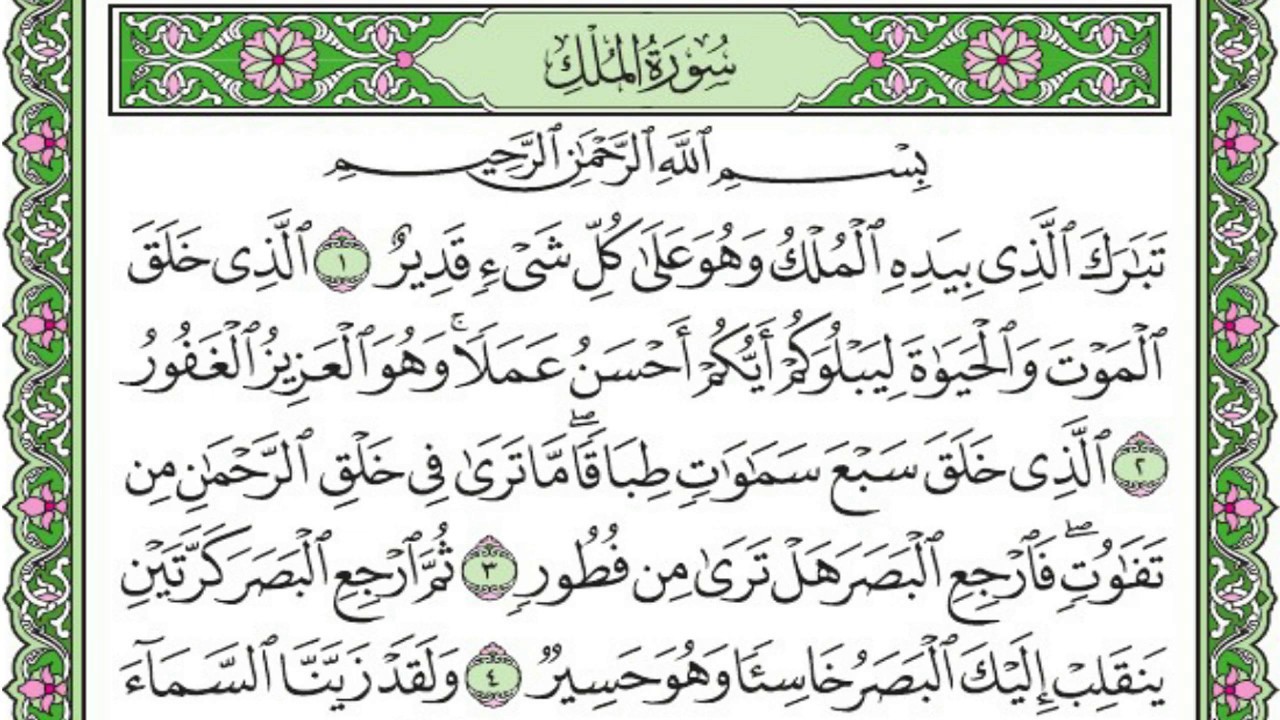 سُورَةُ المُلْكِ
بِسْمِ ٱللَّهِ ٱلرَّحْمَٰنِ ٱلرَّحِيمِ
تَبَٰرَكَ ٱلَّذِى بِيَدِهِ ٱلْمُلْكُ وَهُوَ عَلَىٰ كُلِّ شَىْءٍ قَدِيرٌ ١ ٱلَّذِى خَلَقَ
ٱلْمَوْتَ وَٱلْحَيَوٰةَ لِيَبْلُوَكُمْ أَيُّكُمْ أَحْسَنُ عَمَلًا ۚ وَهُوَ ٱلْعَزِيزُ ٱلْغَفُورُ
٢ ٱلَّذِى خَلَقَ سَبْعَ سَمَٰوَٰتٍ طِبَاقًا ۖ مَّا تَرَىٰ فِى خَلْقِ ٱلرَّحْمَٰنِ مِن
تَفَٰوُتٍ ۖ فَٱرْجِعِ ٱلْبَصَرَ هَلْ تَرَىٰ مِن فُطُورٍ ٣ ثُمَّ ٱرْجِعِ ٱلْبَصَرَ كَرَّتَيْنِ
يَنقَلِبْ إِلَيْكَ ٱلْبَصَرُ خَاسِئًا وَهُوَ حَسِيرٌ ٤ وَلَقَدْ زَيَّنَّا ٱلسَّمَآءَ